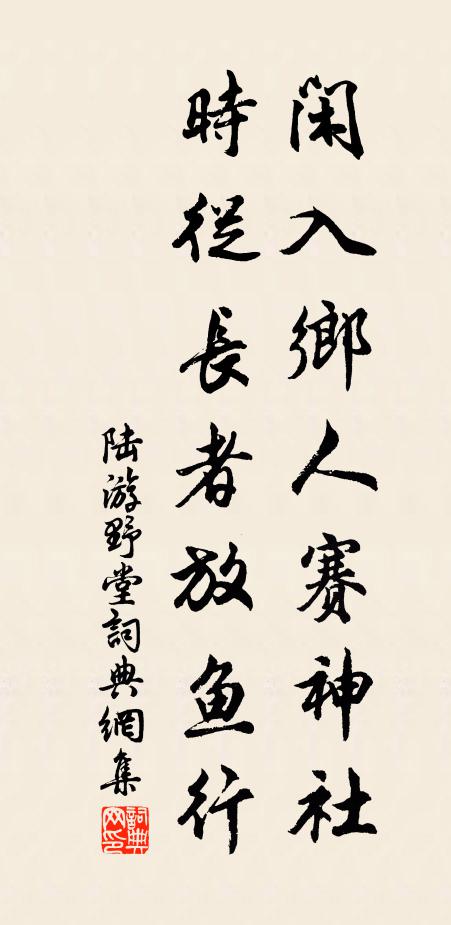 閑入鄉人賽神社
時從長者放鱼行
陆游野堂詞典網集
詞典网印